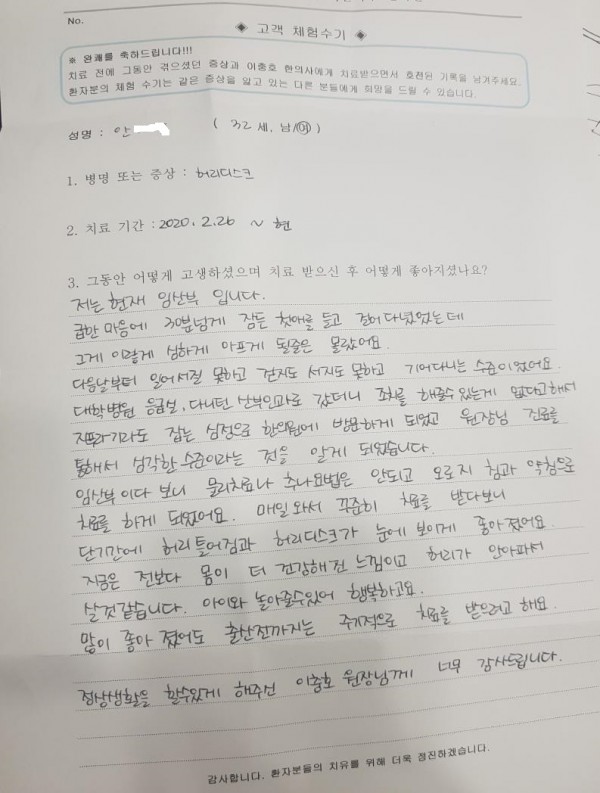 No.
◈ 고객 체험수기 ◈
※ 완쾌를 축하드립니다!!!
치료 전에 그동안 겪으셨던 증상과 이중호 한의사에게 치료받으면서 호전된 기록을 남겨주세요.
환자분의 체험 수기는 같은 증상을 앓고 있는 다른 분들에게 희망을 드릴 수 있습니다.
성명 : 안 ( 32 세, 남/여 )
1. 병명 또는 증상 : 허리디스크
2. 치료 기간 : 2020. 2. 26 ~ 현
3. 그동안 어떻게 고생하셨으며 치료 받으신 후 어떻게 좋아지셨나요?
저는 현재 임산부 입니다.
급한 마음에 30분넘게 잠든 첫애를 들고 걸어다녔었는데
그게 이렇게 심하게 아프게 될줄은 몰랐어요.
다음날부터 일어서질 못하고 걷지도 서지도 못하고 기어다니는 수준이었어요.
대학병원 응급실, 다니던 산부인과로 갔더니 조치를 해줄수 있는게 없다고해서
지푸라기라도 잡는 심정으로 한의원에 방문하게 되었고 원장님 진료를
통해서 심각한 수준이라는 것을 알게 되었습니다.
임산부이다 보니 물리치료나 추나요법은 안되고 오로지 침과 약침으로
치료를 하게 되었어요. 매일 와서 꾸준히 치료를 받다보니
단기간에 허리 틀어짐과 허리디스크가 눈에 보이게 좋아졌어요.
지금은 전보다 몸이 더 건강해진 느낌이고 허리가 안아파서
살것같습니다. 아이와 놀아줄수있어 행복하고요.
많이 좋아 졌어도 출산전까지는 주기적으로 치료를 받으려고 해요.
정상생활을 할수있게 해주신 이중호 원장님께 너무 감사드립니다.
감사합니다. 환자분들의 치유를 위해 더욱 정진하겠습니다.